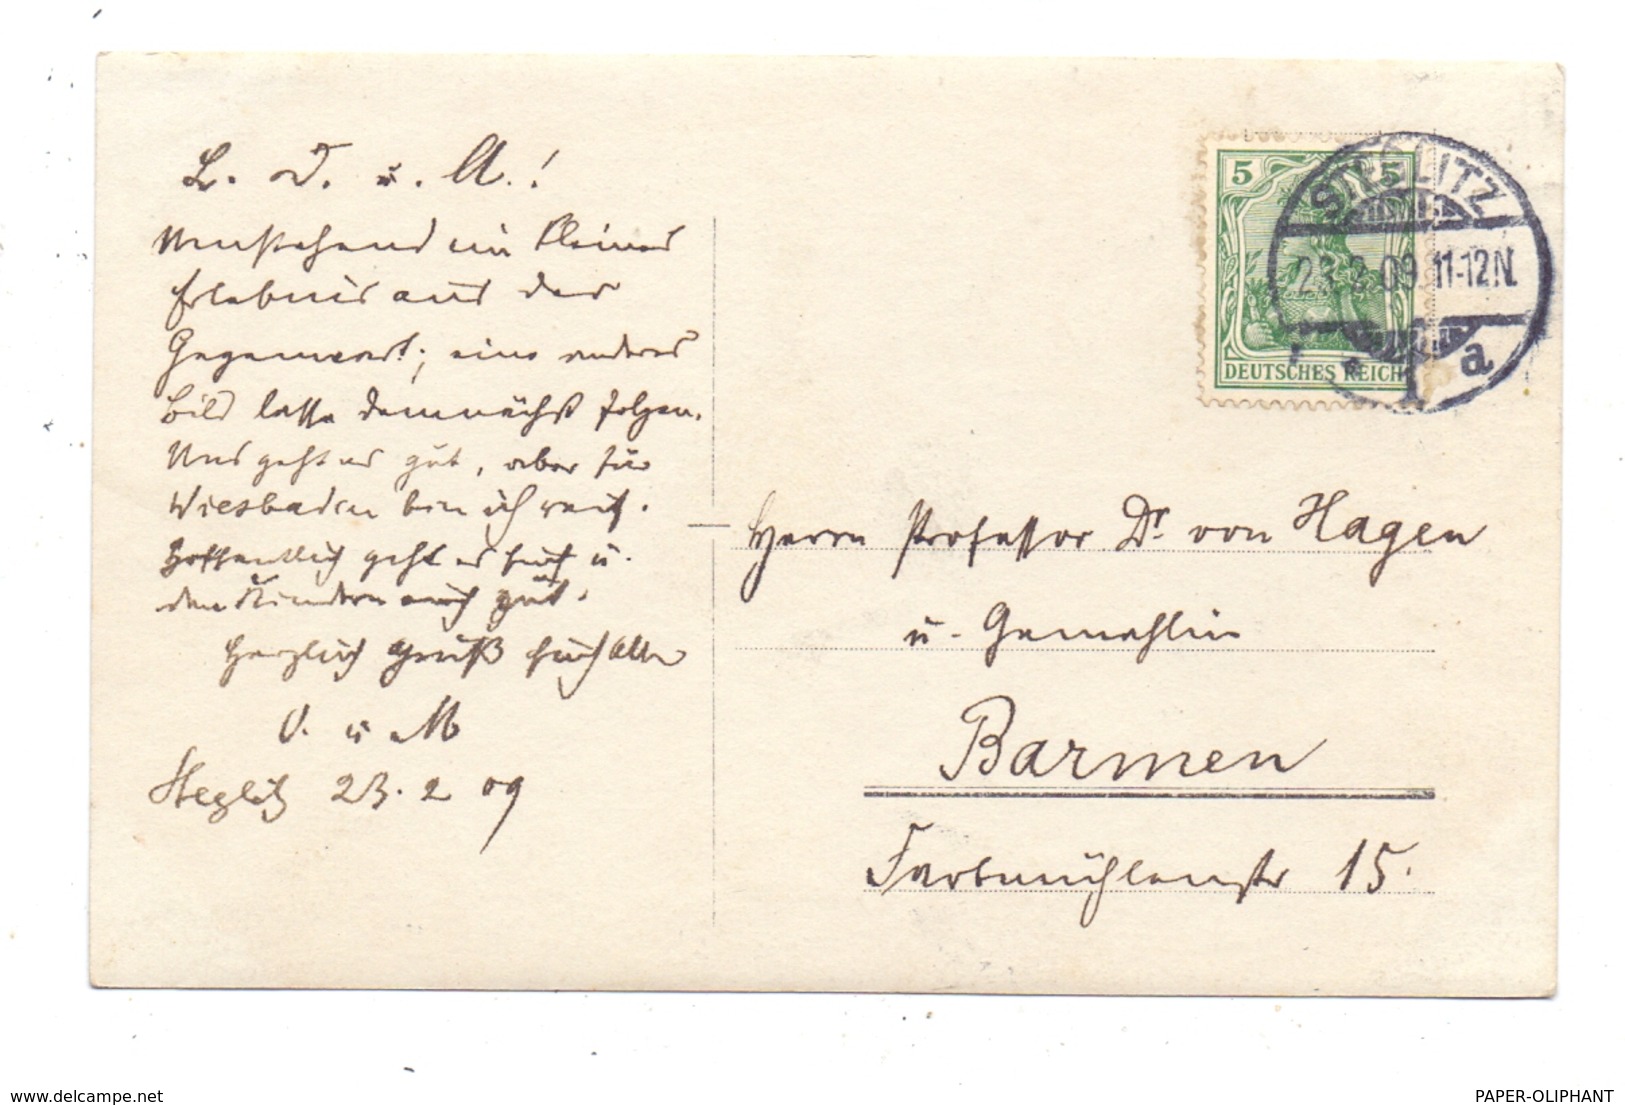 L. D. u. A.!
Umstehend ein kleines
Erlebnis aus der
Gegenwart; eine anderes
Bild lasse demnächst folgen.
Uns geht es gut, aber für
Wiesbaden bin ich reif.
Hoffentlich geht es Euch u.
den Kindern auch gut.
Herzlich Gruß Euch Allen
O. u M
Steglitz 23. 2 09
5 5
DEUTSCHES REICH
STEGLITZ
23.2.09 11-12N.
1 a
Herrn Professor Dr. von Hagen
u. Gemahlin
Barmen
Farbmühlenstr 15.
www.delcampe.net
PAPER-OLIPHANT